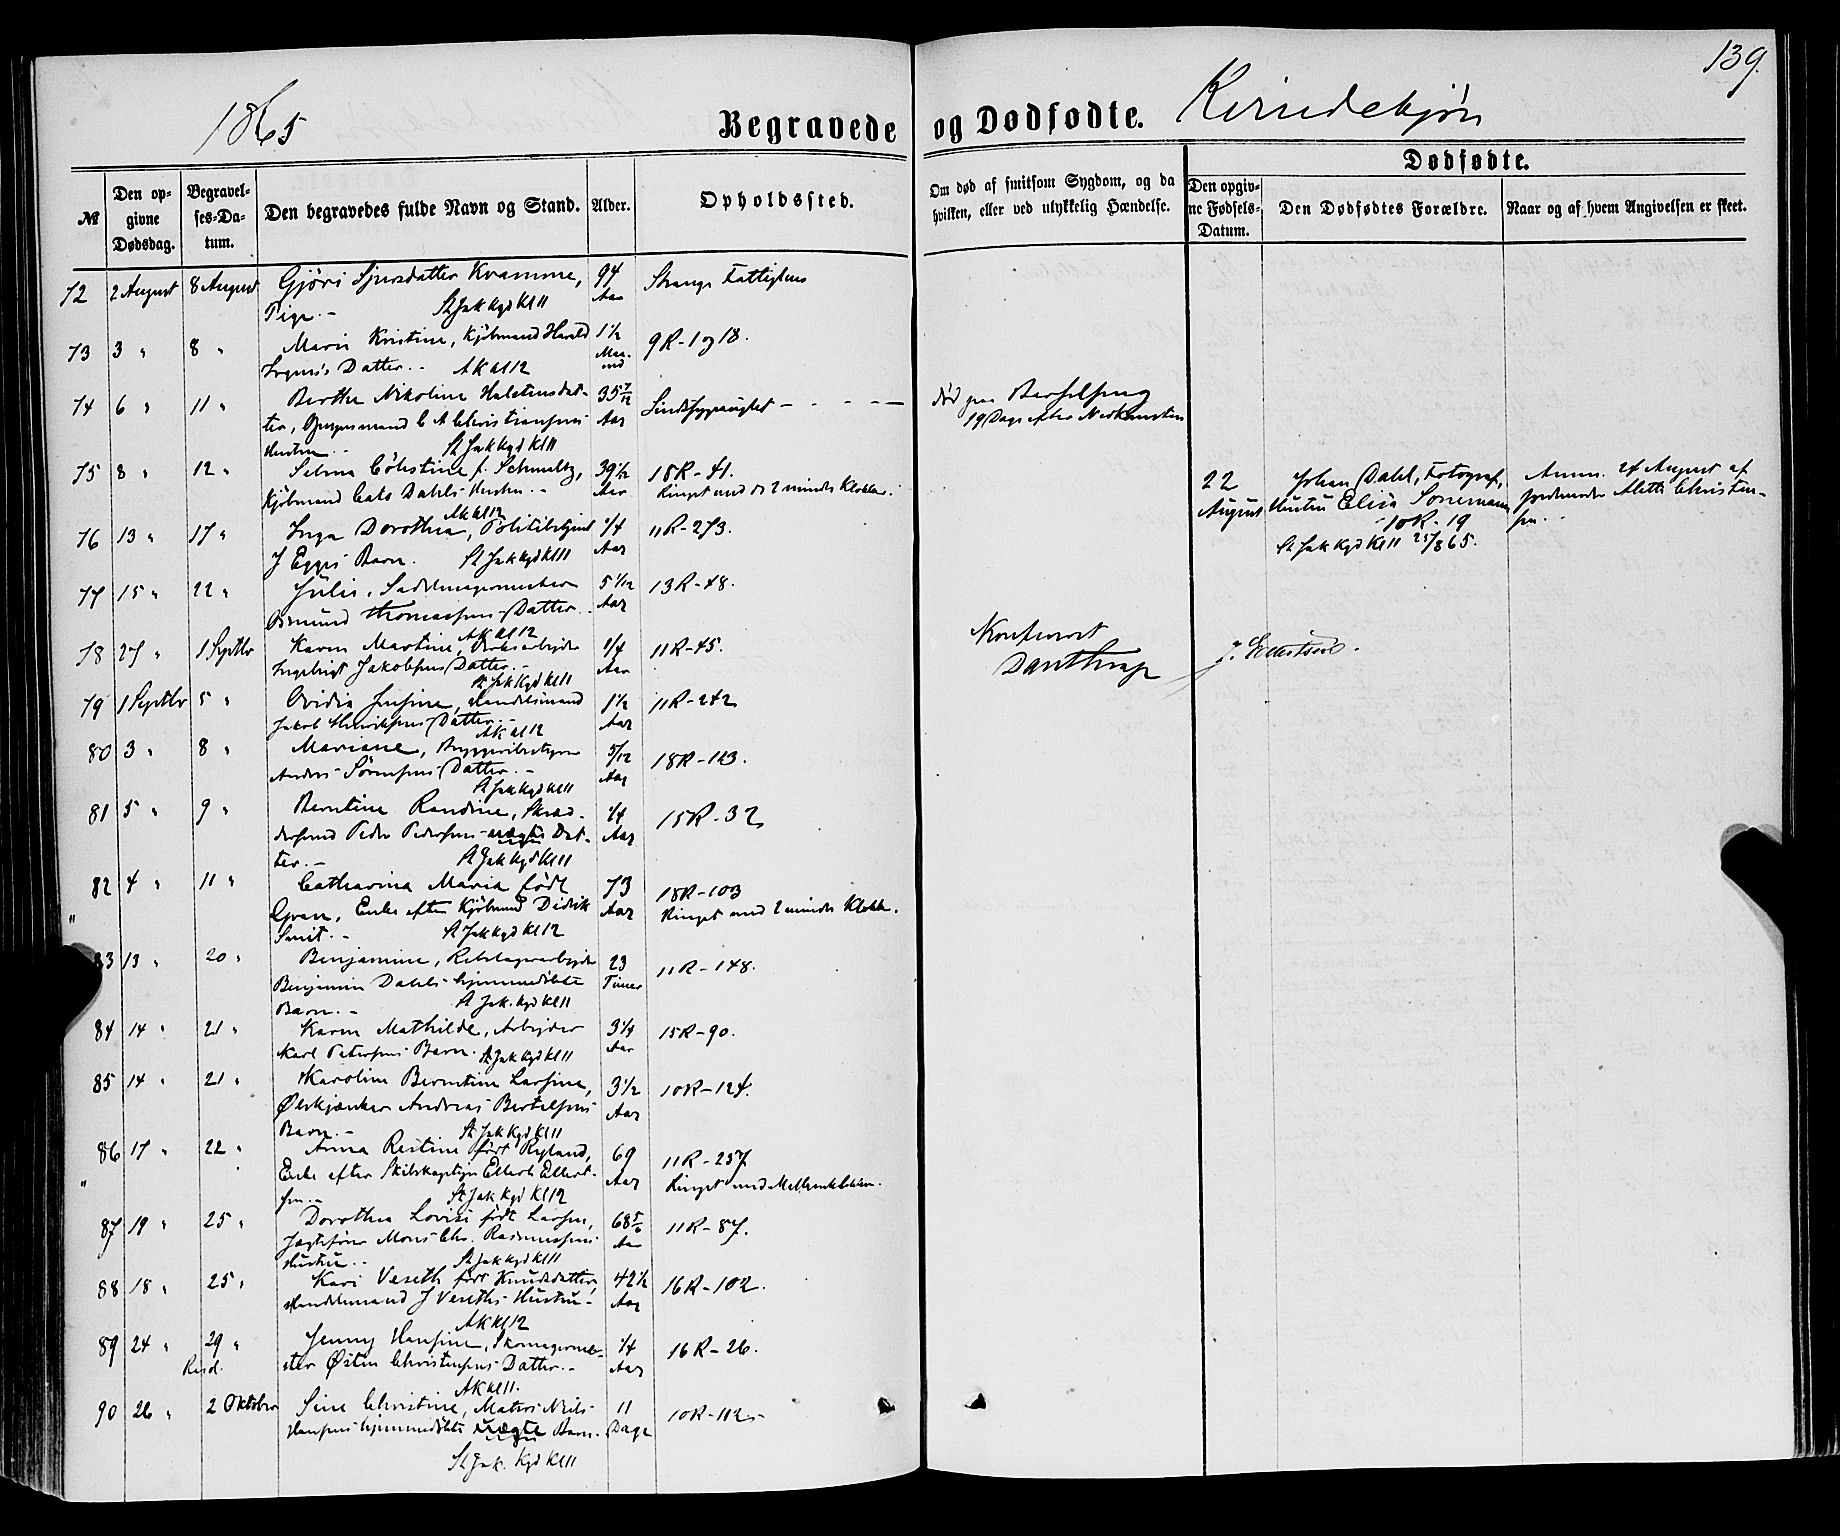 139.
1865
Begravede og Dødfødte. Kvindekjøn
№
Den opgivne Dødsdag.
Begravelses-Datum.
Den begravedes fulde Navn og Stand.
Alder.
Opholdssted.
Om død af smitsom Sygdom, og da hvilken, eller ved ulykkelig Hændelse.
Dødfødte.
Den opgivne Fødsels-Datum.
Den Dødfødtes Forældre.
Naar og af hvem Angivelsen er skeet.
72 2 August 8 August Gjøri Sjursdatter Kvamme, 94 Strange Fattighus
Pige.- St Jak Kgd Kl 11 Aar
73 3 " 8 " Marie Kristine, Kjøbmand Harald 1½ 9R-1 og 18.
Datter.- AK Kl 12 Maaned
74 6 " 11 " Berthe Nikoline Halstensdat- 35 7/12 Sindssygeasylet - - - - død paa Barselseng
ter, C A Christiansens Aar 19 Dage efter Nedkomsten
Hustru.- St Jak Kgd Kl 11
75 8 " 12 " Selma Cölestine f. Schmeltz, 39½ 18R-41.
Kjøbmand Dahls Hustru.- Aar Ringet med de 2 mindre Klokker.
AK Kl 12
22 August
Johan Dahl, Fotograf,
Hustru Elisa Sonnemann
10R-19
St Jak Kgd Kl 11 25/8 65.
Anm. 24 August af
Jordmoder Alette Christen-
sen.-
76 13 " 17 " Inga Dorothea, Politibetjent ¼ 11R-273.
J Egges Barn. St Jak Kgd Kl 11 Aar
77 15 " 22 " Julie, Sadelmagermester 5 1/12 13R-48.
Thomassens Datter.- Aar
AK Kl 12
78 27 " 1 Septbr Karen Martine, 1/4 11R-45.
Ingebrigt Jakobsens Datter.- Aar
St Jak Kgd Kl 11
Konfereret
Danthrap J. Ellertsen.
79 1 Septbr 5 " Ovidia Josefine, Handelsmand 1½ 11R-242
Jakob Henriksens Datter.- Aar
AK Kl 12
80 3 " 8 " Mariane, Bryggeribestyrer 5/12 18R-113.
Anders Sørensens Datter.- Aar
St Jak Kgd Kl 11
81 5 " 9 " Berntine Randine, Skræd- ¼ 15R-32
dersvend Peder Pedersens uægte Dat- Aar
ter.- St Jak Kgd Kl 11
82 4 " 11 " Catharina Maria født 73 18R-103
Gran, Enke efter Kjøbmand Didrik Aar Ringet med 2 mindre Klokker.
" Smit.- St Jak Kgd Kl 12
83 13 " 20 " Benjamine, Rebslagerarbeider 23 11R-148.
Benjamin Dahls hjemmedøbte Timer
Barn.- St Jak. Kgd Kl 11
84 14 " 21 " Karen Mathilde, Arbeider 3¼ 15R-90.
Karl Petersens Barn. St Jak Kgd Kl 11 Aar
85 14 " 21 " Karoline Berntine Larsine, 3½ 10R-124.
Ølskjænker Andreas Bertelsens Aar
Barn.- St Jak Kgd Kl 11
86 17 " 22 " Anna Restine født Ryland, 69 11R-257
" Enke efter Skibskaptejn Ellert Ellert- Aar Ringet med Mellemklokken.
sen.- St Jak Kgd Kl 12
87 19 " 25 " Dorothea Lovise født Larsen, 68 5/6 11R-87.
Jægtefører Mons Chr. Rasmussens Aar
Hustru.- St Jak Kgd Kl 11
88 18 " 25 " Kari Veseth født Knudsdatter, 42½ 16R-102.
Handelsmand J Veseths Hustru.- Aar
AK Kl 12
89 24 " 29 " Jenny Hansine, Skomagerme- ¼ 16R-26.
ster Østen Christensens Datter.- Aar
AK Kl 11.
90 26 " 2 Oktober Sine Christine, Matros Niels 11 10R-112-
Hansens hjemmedøbte uægte Barn. Dage
St Jak. Kgd Kl 11